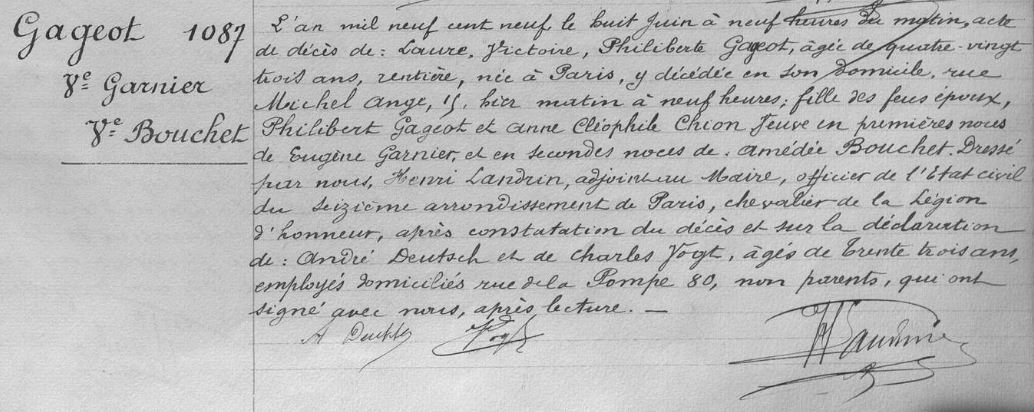 Gageot 1087
Vᵉ Garnier
Vᵉ Bouchet
L'an mil neuf cent neuf le huit Juin à neuf heures du matin, acte
de décès de : Laure, Victoire, Philiberte Gageot, âgée de quatre-vingt
trois ans, rentière, née à Paris, y décédée en son domicile, rue
Michel Ange, 15, hier matin à neuf heures; fille des feus époux,
Philibert Gageot et Anne Cléophile Chion Veuve en premières noces
de Eugène Garnier, et en secondes noces de : Amédée Bouchet. Dressé
par nous, Henri Landrin, adjoint au Maire, officier de l'Etat civil
du seizième arrondissement de Paris, chevalier de la Légion
d'honneur, après constatation du décès et sur la déclaration
de : André Deutsch et de Charles Vogt, âgés de trente trois ans,
employés domiciliés rue de la Pompe 80, non parents, qui ont
signé avec nous, après lecture. —
A Deutsch Vogt HLandrin